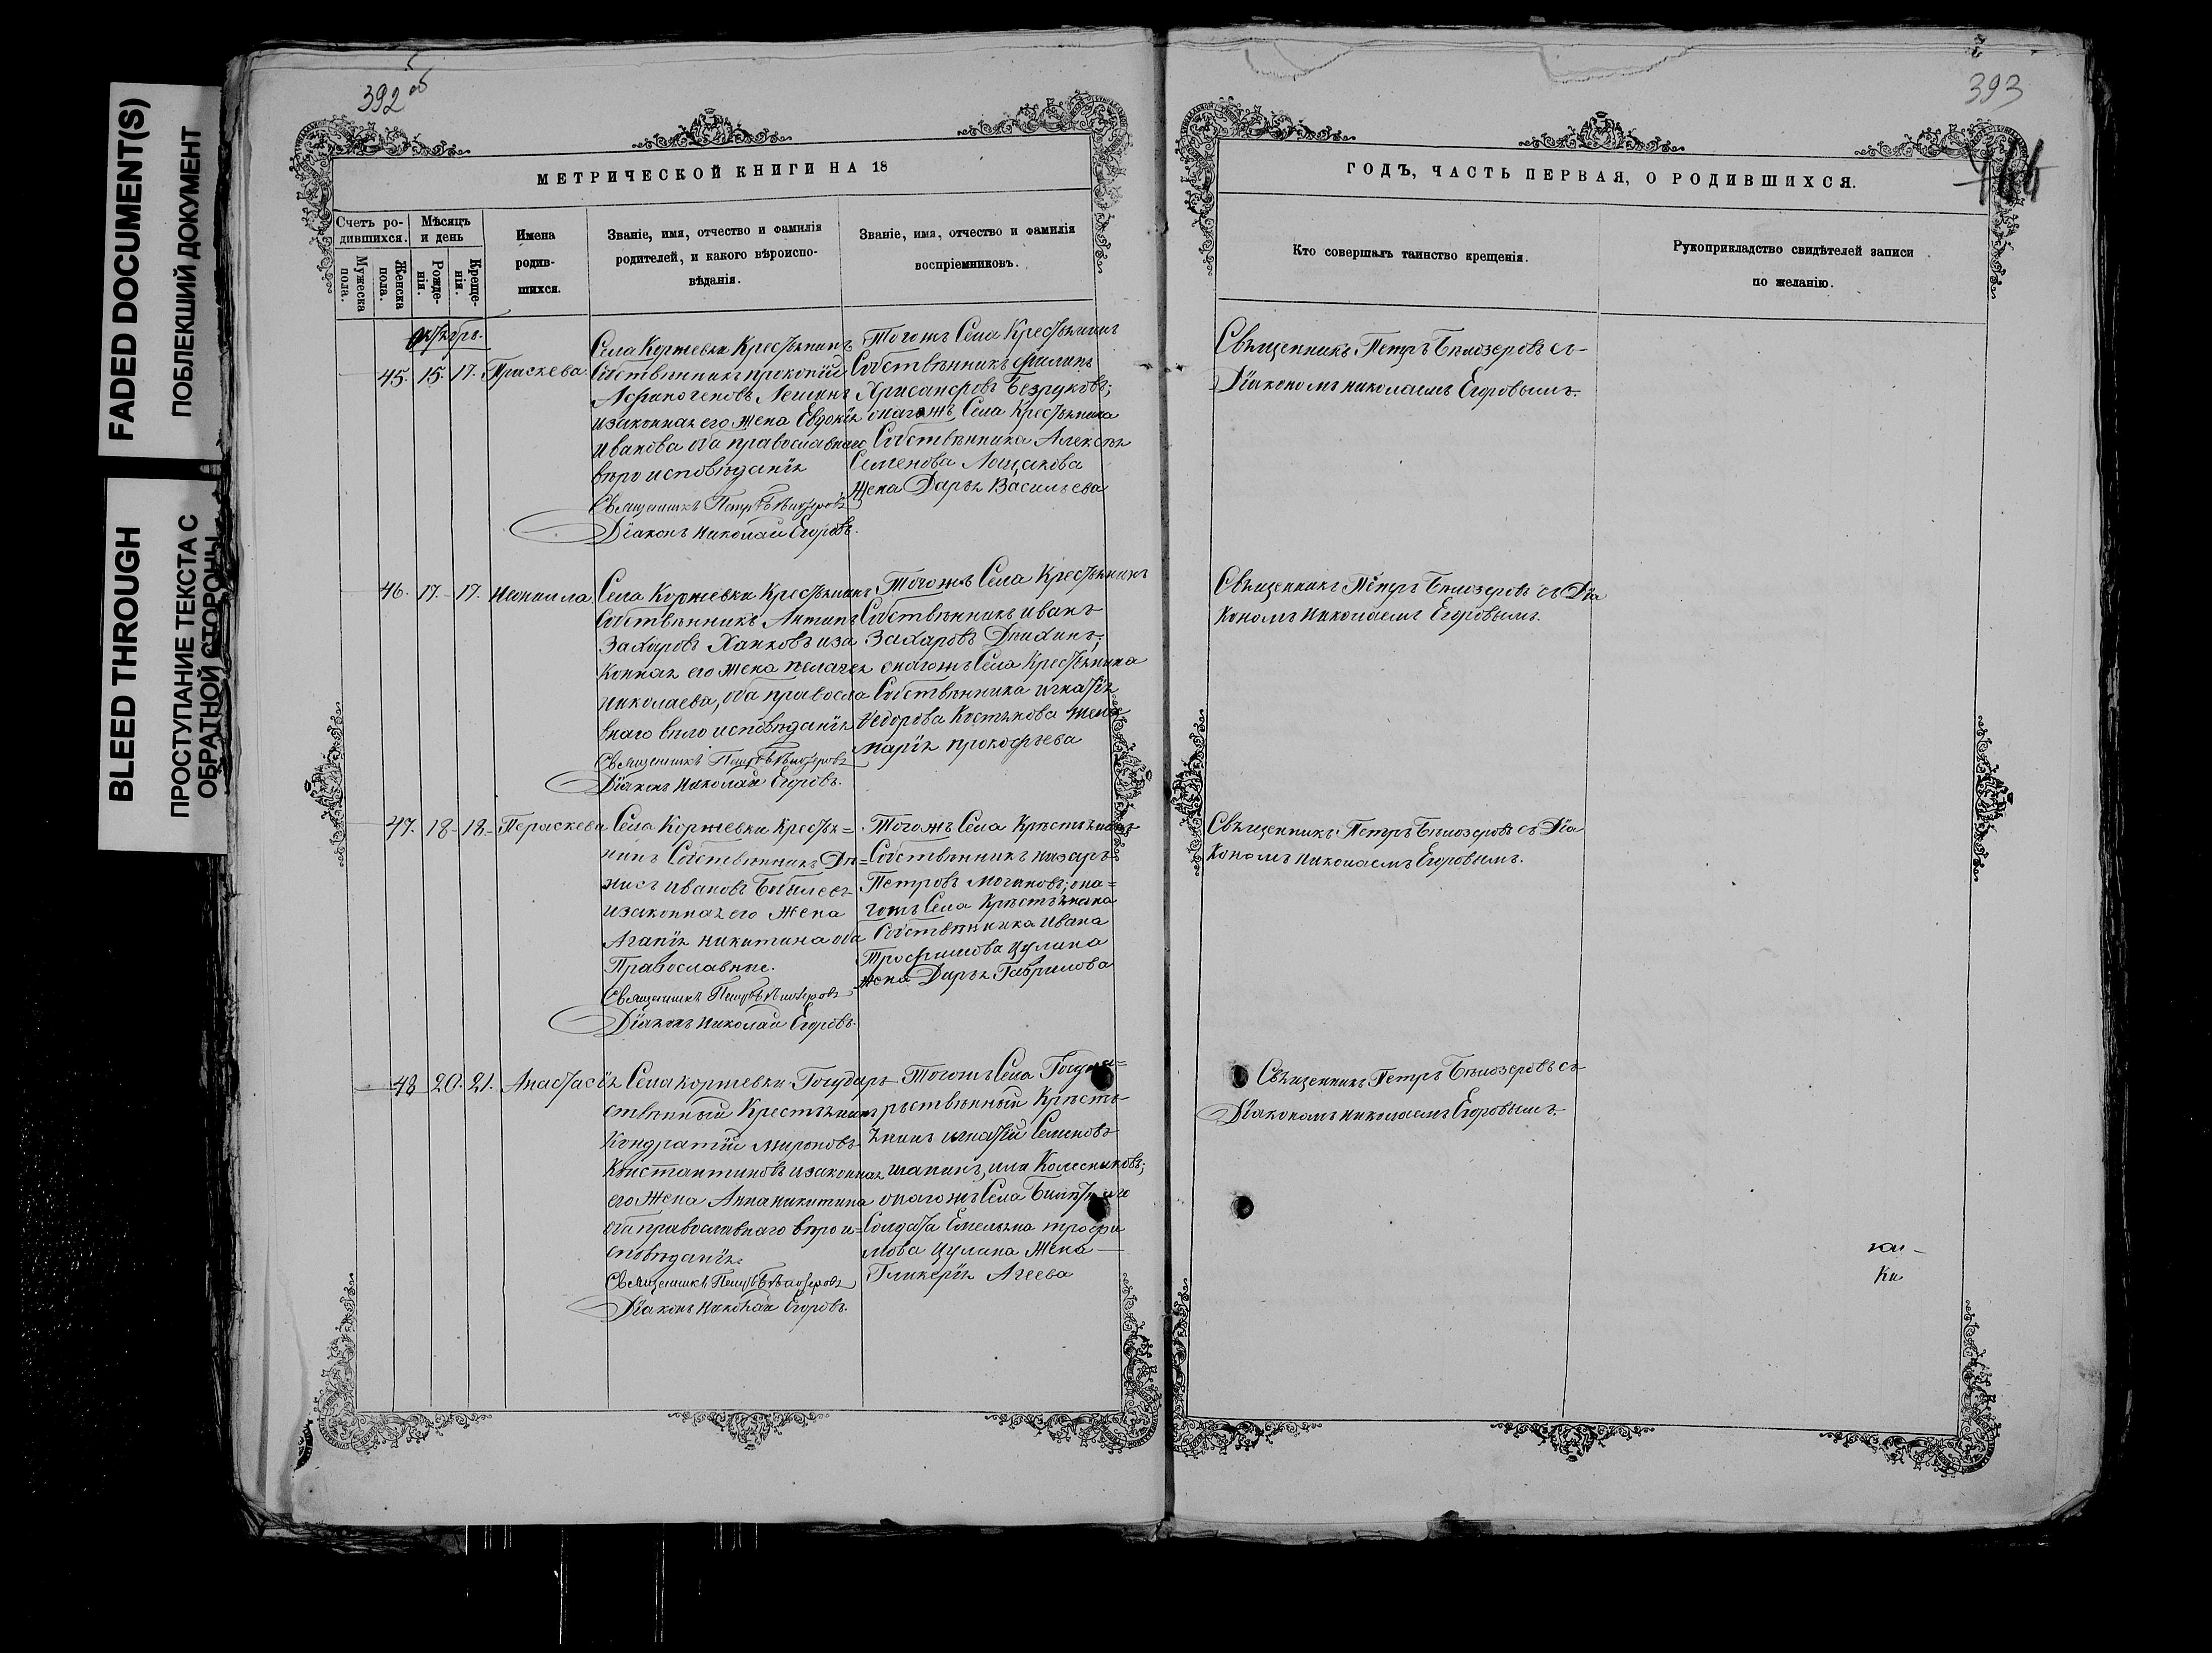 FADED DOCUMENT(S)
ПОБЛЕКШИЙ ДОКУМЕНТ
BLEED THROUGH
ПРОСТУПАНИЕ ТЕКСТА С
ОБРАТНОЙ СТОРОНЫ
392 об
МЕТРИЧЕСКОЙ КНИГИ НА 18
Счетъ ро-
дившихся.
Мѣсяцъ
и день
Мужеска
пола.
Женска
пола.
Рожде-
нія.
Креще-
нія.
Имена
родив-
шихся.
Званіе, имя, отчество и фамилія
родителей, и какого вѣроиспо-
вѣданія.
Званіе, имя, отчество и фамилія
воспріемниковъ.
Октябрь.
45. 15. 17. Праскева
Села Коржевки Крестьянинъ
Собственникъ Прокопій
Афиногеновъ Лешинъ
и законная его жена Евдокія
Иванова оба православнаго
вѣроисповѣданія
Священникъ Петръ Бѣлозеровъ
Діаконъ Николай Егоровъ.
Тогожъ Села Крестьянинъ
Собственникъ Филипъ
Хрисанфовъ Безруковъ;
онагожъ Села Крестьянина
Собственника Алексѣя
Семенова Лощакова
жена Дарья Васильева
46. 17. 17. Неонилла
Села Коржевки Крестьянинъ
Собственникъ Антипъ
Захаровъ Ханковъ и за
конная его жена Пелагея
Николаева, оба правосла
внаго вѣроисповѣданія
Священникъ Петръ Бѣлозеровъ
Діаконъ Николай Егоровъ.
Тогожъ Села Крестьянинъ
Собственникъ Иванъ
Захаровъ
онагожъ Села Крестьянина
Собственника Игнатія
Федорова Костянова жена
Марія Прокофьева
47. 18. 18. Пераскева
Села Коржевки Крестья=
нинъ Собственникъ Де=
нисъ Ивановъ
и законная его жена
Агапія Никитина оба
Православные.
Священникъ Петръ Бѣлозеровъ
Діаконъ Николай Егоровъ.
Тогожъ Села Крестьянинъ
Собственникъ Назаръ
Петровъ Логиновъ; она=
гожъ Села Крестьянина
Собственника Ивана
Трофимова Цулина
жена Дарья Гаврилова
48 20. 21. Анастасія
Села Коржевки Государ
ственный Крестьянинъ
Кондратій Мироновъ
Константиновъ и законная
его жена Анна Никитина
оба православнаго вѣрои=
сповѣданія.
Священникъ Петръ Бѣлозеровъ
Діаконъ Николай Егоровъ.
Тогожъ Села Госуда=
рственный Кресть
янинъ Игнатій Семеновъ
или Колесниковъ;
онагожъ Села
Солдата Емельяна Трофи
мова Цулина жена
Гликерія Агеева
393
ГОДЪ, ЧАСТЬ ПЕРВАЯ, О РОДИВШИХСЯ.
Кто совершалъ таинство крещенія.
Рукоприкладство свидѣтелей записи
по желанію.
Священникъ Петръ Бѣлозеровъ съ
Діакономъ Николаемъ Егоровымъ.
Священникъ Петръ Бѣлозеровъ съ Діа
кономъ Николаемъ Егоровымъ.
Священникъ Петръ Бѣлозеровъ съ Діа
кономъ Николаемъ Егоровымъ.
Священникъ Петръ Бѣлозеровъ съ
Діакономъ Николаемъ Егоровымъ.
ки